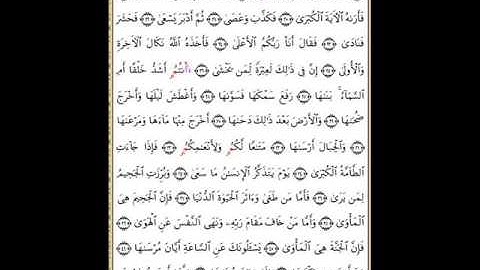 فَأَرَىٰهُ ٱلْآيَةَ ٱلْكُبْرَىٰ ﴿٢٠﴾ فَكَذَّبَ وَعَصَىٰ ﴿٢١﴾ ثُمَّ أَدْبَرَ يَسْعَىٰ ﴿٢٢﴾ فَحَشَرَ
فَنَادَىٰ ﴿٢٣﴾ فَقَالَ أَنَا۠ رَبُّكُمُ ٱلْأَعْلَىٰ ﴿٢٤﴾ فَأَخَذَهُ ٱللَّهُ نَكَالَ ٱلْآخِرَةِ
وَٱلْأُولَىٰ ﴿٢٥﴾ إِنَّ فِى ذَٰلِكَ لَعِبْرَةً لِّمَن يَخْشَىٰ ﴿٢٦﴾ ءَانتُمُۥ أَشَدُّ خَلْقًا أَمِ
ٱلسَّمَآءُ ۚ بَنَىٰهَا ﴿٢٧﴾ رَفَعَ سَمْكَهَا فَسَوَّىٰهَا ﴿٢٨﴾ وَأَغْطَشَ لَيْلَهَا وَأَخْرَجَ
ضُحَىٰهَا ﴿٢٩﴾ وَٱلْأَرْضَ بَعْدَ ذَٰلِكَ دَحَىٰهَا ﴿٣٠﴾ أَخْرَجَ مِنْهَا مَآءَهَا وَمَرْعَىٰهَا
﴿٣١﴾ وَٱلْجِبَالَ أَرْسَىٰهَا ﴿٣٢﴾ مَتَٰعًا لَّكُمُۥ وَلِأَنْعَٰمِكُمُۥ ﴿٣٣﴾ فَإِذَا جَآءَتِ
ٱلطَّآمَّةُ ٱلْكُبْرَىٰ ﴿٣٤﴾ يَوْمَ يَتَذَكَّرُ ٱلْإِنسَٰنُ مَا سَعَىٰ ﴿٣٥﴾ وَبُرِّزَتِ ٱلْجَحِيمُ
لِمَن يَرَىٰ ﴿٣٦﴾ فَأَمَّا مَن طَغَىٰ ﴿٣٧﴾ وَءَاثَرَ ٱلْحَيَوٰةَ ٱلدُّنْيَا ﴿٣٨﴾ فَإِنَّ ٱلْجَحِيمَ هِىَ
ٱلْمَأْوَىٰ ﴿٣٩﴾ وَأَمَّا مَنْ خَافَ مَقَامَ رَبِّهِۦ وَنَهَى ٱلنَّفْسَ عَنِ ٱلْهَوَىٰ ﴿٤٠﴾
فَإِنَّ ٱلْجَنَّةَ هِىَ ٱلْمَأْوَىٰ ﴿٤١﴾ يَسْـَٔلُونَكَ عَنِ ٱلسَّاعَةِ أَيَّانَ مُرْسَىٰهَا ﴿٤٢﴾